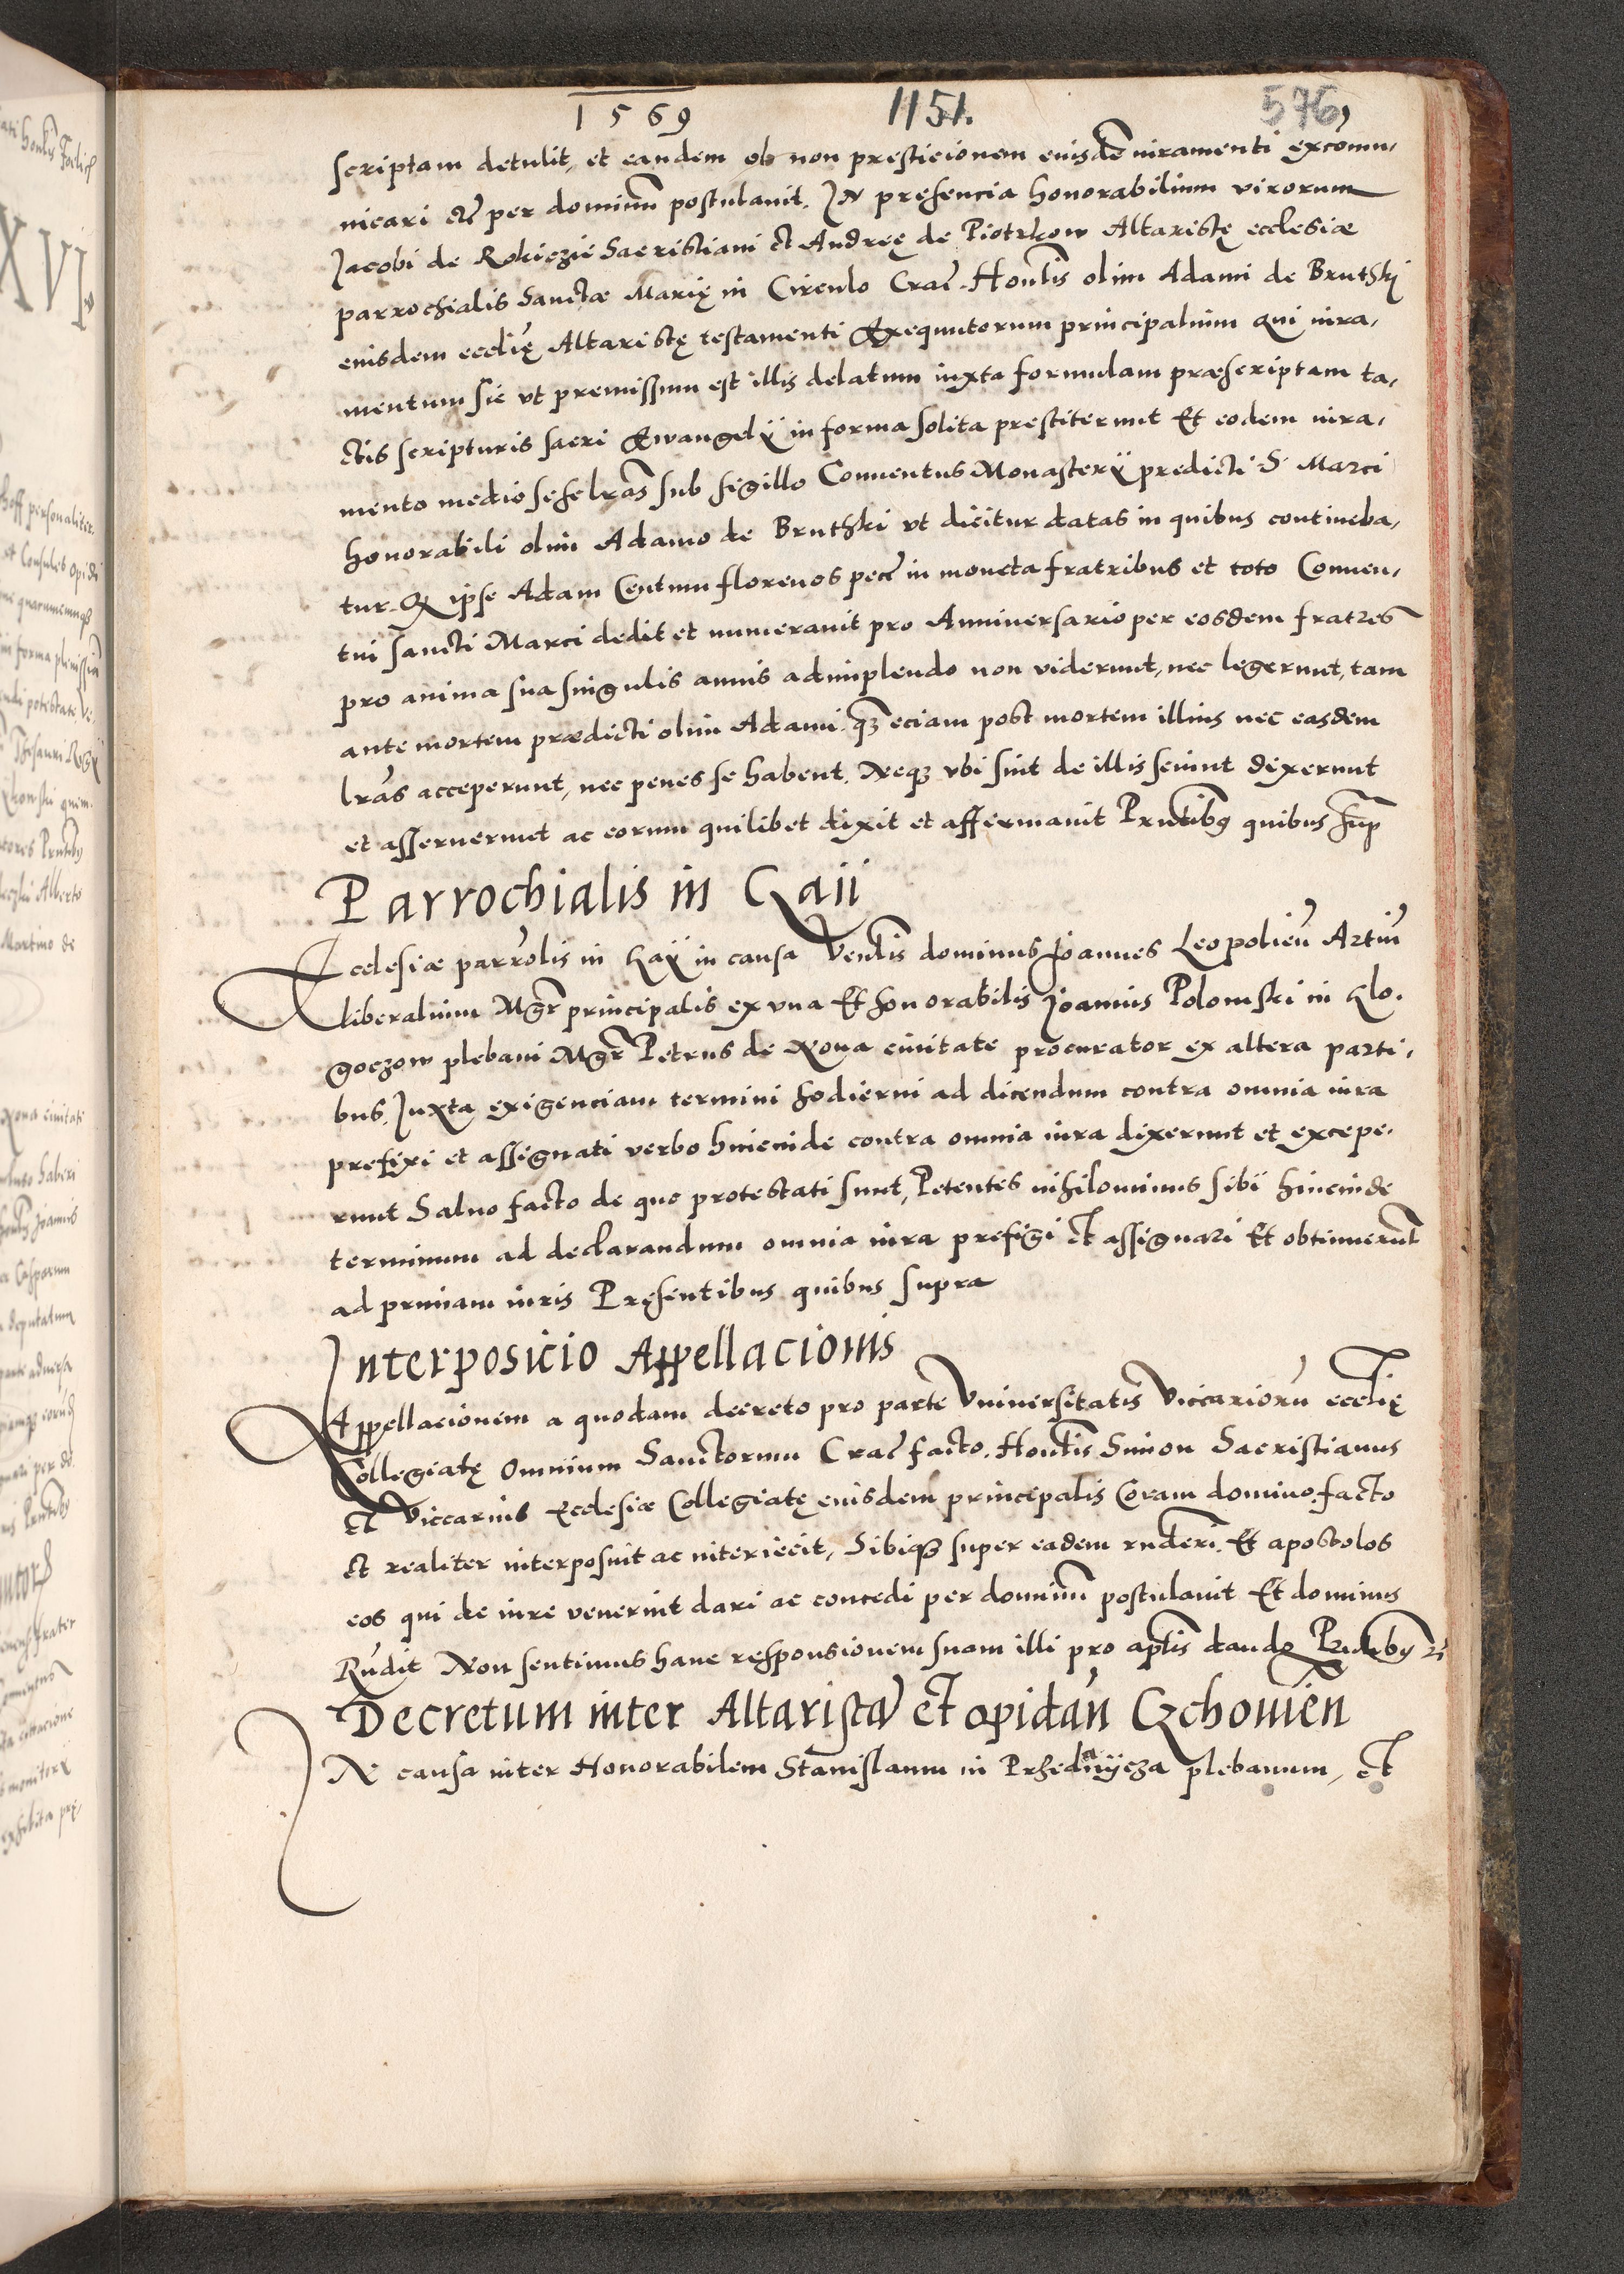 1569 1151. 576
scriptam detulit, et eandem ob non prestitionem eiusdē iuramenti excomu,
nicari etc̄ per dominum postulauit. IN presencia honorabilium virorum
Jacobi de Rokiczie Sacristiani et Andreę de Piotrkow Altaristę ecclesiæ
parrochialis Sanctæ Marię in Circulo Crac̄. Honlis olim Adami de Bruthski
eiusdem eccl̄ię Altaristę testamenti Exequutorum principalium Qui iura,
mentum sic vt premissum est illis delatum iuxta formulam præscriptam ta,
ctis scripturis sacri Ewangelÿ in forma solita prestiterunt Et eodem iura,
mento medio se se lrās sub sigillo Conuentus Monasterÿ predicti S. Marci
honorabili olim Adamo de Bruthski vt dicitur datas in quibus contineba,
tur. Q ipse Adam Centum florenos pec̄ in moneta fratribus et toto Conuen,
tui sancti Marci dedit et numerauit pro Anniuersario per eosdem fratres
pro anima sua singulis annis adimplendo non viderunt, nec legerunt, tam
ante mortem prædicti olim Adami. qȝ eciam post mortem illius nec easdem
lrās acceperunt, nec penes se habent. Neqȝ vbi sint de illis sciunt dixerunt
et asseruerunt ac eorum quilibet dixit et affirmauit Prntibȝ quibus sup̄
Parrochialis in Gaii
Ecclesiæ parrolis in Gaÿ in causa Venlis dominus Joannes Leopolien̄ Artiū
liberalium Mgr̄ principalis ex vna Et honorabilis Joannis Polomski in Glo.
goczow plebani Mgr̄ Petrus de Noua ciuitate procurator ex altera parti,
bus. Juxta exigenciam termini hodierni ad dicendum contra omnia iura
prefixi et assignati verbo hincinde contra omnia iura dixerunt et excepe.
runt Saluo facto de quo protestati sunt, Petentes nihilominus sibi hincinde
terminum ad declarandum omnia iura prefigi et assignari Et obtinuerunt
ad primam iuris Pręsentibus quibus supra
Interposicio Appellacionis
Appellacionem a quodam decreto pro parte Vniuersitatis Viccariorū eccl̄ię
Collegiatę Omnium Sanctorum Crac̄ facto. Honlis Simon Sacristianus
et Viccarius Ecclesiæ Collegiatę eiusdem principalis Coram domino facto
et realiter interposuit ac interiecit, Sibiqȝ super eadem rnderi. Et apostolos
eos qui de iure venerint dari ac concedi per dominum postulauit Et dominus
Rndit Non sentimus hanc responsionem suam illi pro aplis dando Prntibȝ
Decretum inter Altaristā et opidan̄ Czchouien̄
IN causa inter Honorabilem Stanislaum in plebanum, et